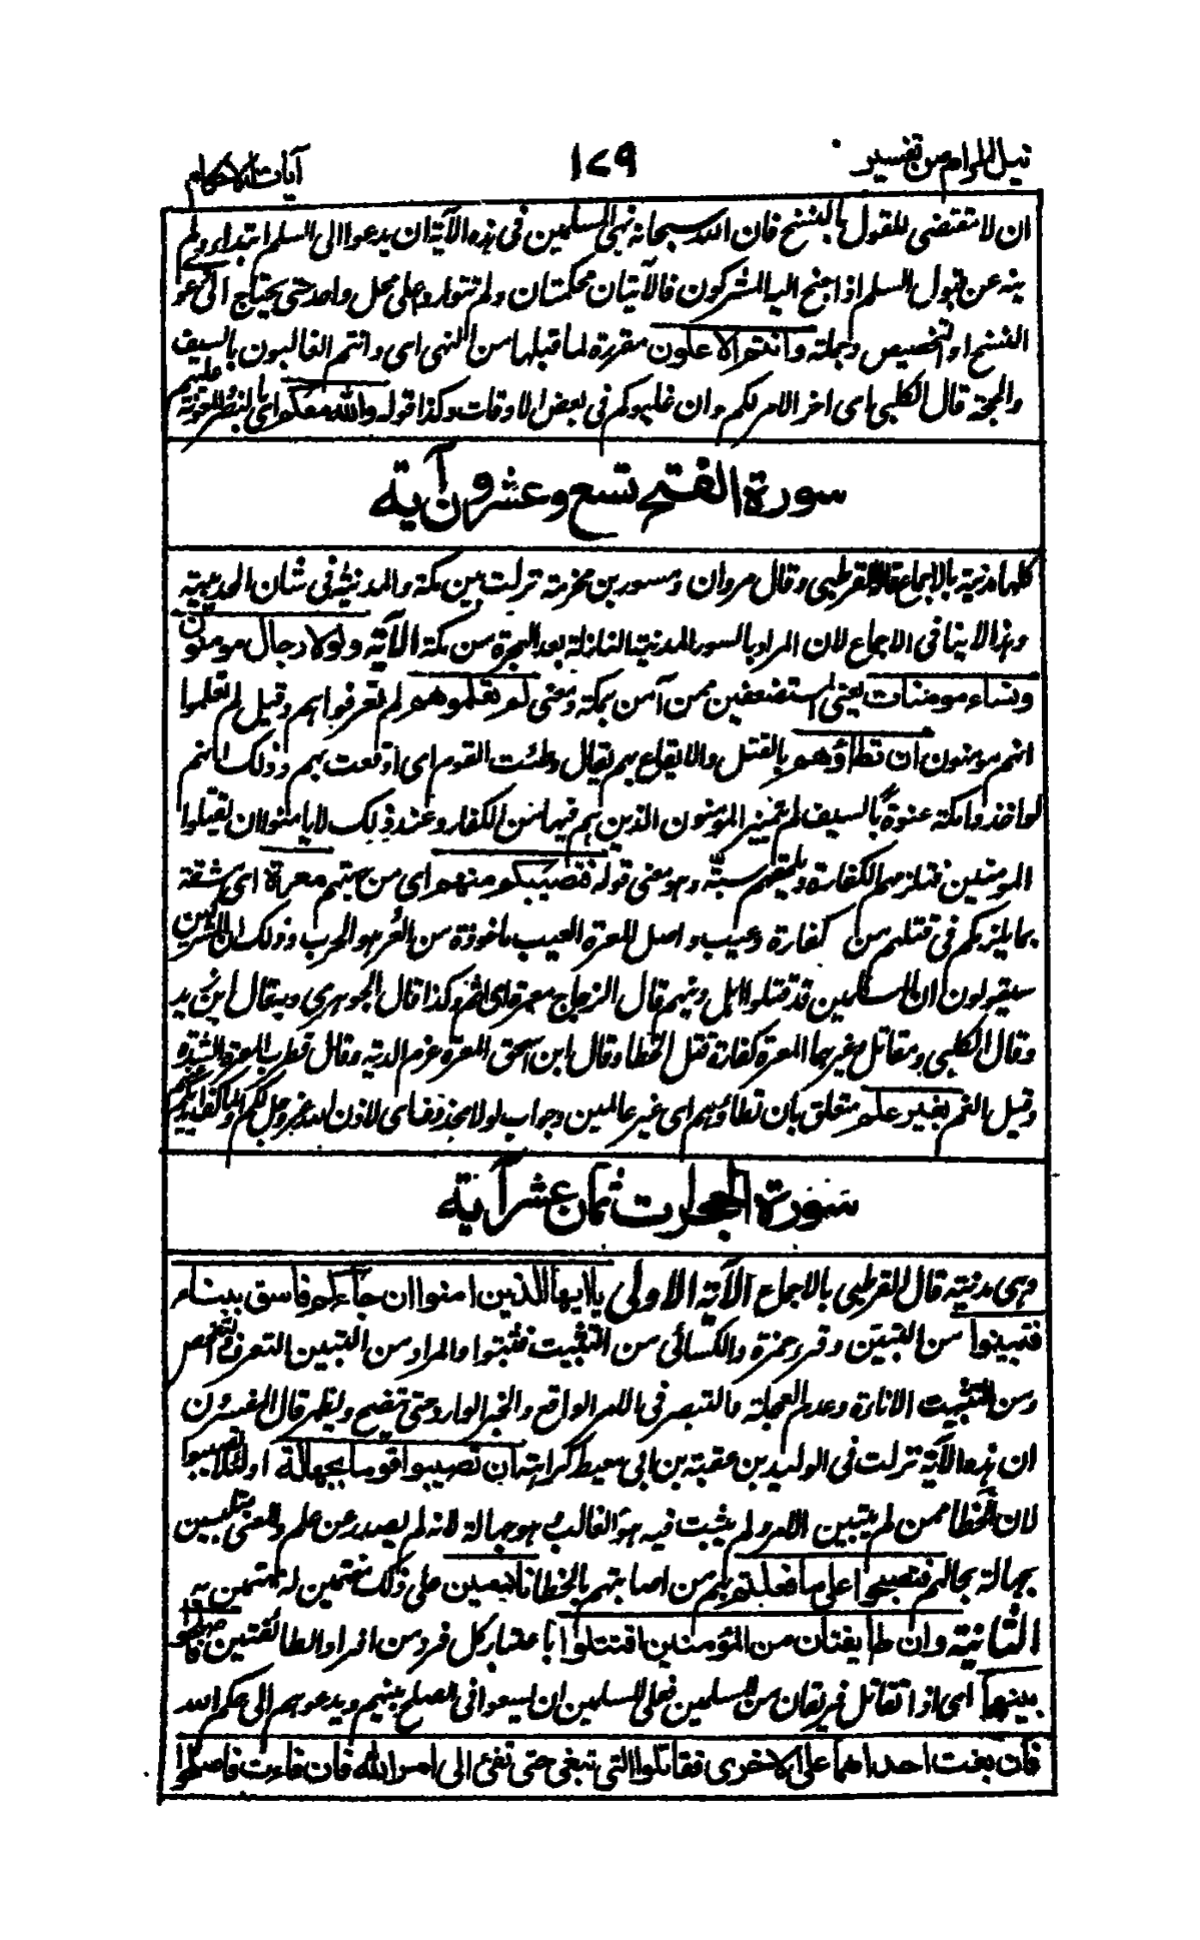 نيل المرام من تفسير
١٧٩
آيات الاحكام
ان لا تقتضى للقول بالنسخ فان الله سبحانه نهى المسلمين فى هذه الآية ان يدعوا الى السلم ابتداء ولم
ينه عن قبول السلم اذا جنح اليه المشركون فالآيتان محكمتان ولم تتواردا على محل واحد حتى يحتاج الى دعوى
النسخ او التخصيص وجملة وانتم الاعلون مقررة لما قبلها من النهى اى وانتم الغالبون بالسيف
والحجة قال الكلبى اى اخر الامر لكم وان غلبوكم فى بعض الاوقات وكذا قوله والله معكم اى بالنصر والمعونة عليهم
سورة الفتح تسع وعشرون آية
كلها مدنية بالاجماع قاله القرطبى وقال مروان ومسور بن مخرمة نزلت بين مكة والمدينة فى شان الحديبية
وهذا لا ينافى الاجماع لان المراد بالسور المدنية النازلة بعد الهجرة من مكة الآية ولولا رجال مومنون
ونساء مومنات يعنى المستضعفين ممن آمن بمكة ومعنى لم تعلموهم لم تعرفوهم وقيل لم تعلموا
انهم مومنون ان تطاؤهم بالقتل والايقاع بهم يقال وطئت القوم اى اوقعت بهم وذلك انهم
لو اخذوا مكة عنوة بالسيف لم يتميز المؤمنون الذين هم فيها من الكفار وعند ذلك لا يامنوا ان يقتلوا
المومنين فتلزمهم الكفارة وتلحقهم سبّة وهو معنى قوله فتصيبكم منهم اى من جهتهم معرة اى مشقة
بما يلزمكم فى قتلهم من كفارة وعيب واصل المعرة العيب ماخوذة من العُر وهو الجرب وذلك ان المشركين
سيقولون ان المسلمين قد قتلوا اهل دينهم قال الزجاج معرة اى اثم وكذا قال الجوهرى وبه قال ابن زيد
وقال الكلبى ومقاتل وغيرهما المعرة كفارة قتل الخطا وقال ابن اسحق المعرة غرم الدية وقال قطرب المعرة الشدة
وقيل الغم بغير علم متعلق بان تطاؤهم اى غير عالمين وجواب لولا محذوف اى لاذن الله عز وجل لكم
سورة الحجرات ثمان عشر آية
وهى مدنية قال القرطبى بالاجماع الآية الاولى يا ايها الذين امنوا ان جاءكم فاسق بنباء
فتبينوا من التبين وقرء حمزة والكسائى من التثبت فتثبتوا والمراد من التبين التعرف والتفحص
ومن التثبت الاناءة وعدم العجلة والتبصر فى الامر الواقع والخبر الوارد حتى يتضح ويظهر قال المفسرون
ان هذه الآية نزلت فى الوليد بن عقبة بن ابى معيط كراهة ان تصيبوا قوما بجهالة او لئلا تصيبوا
لان الخطا ممن لم يتبين الامر ولم يتثبت فيه هو الغالب وهو جهالة لانه لم يصدر عن علم والمعنى متلبسين
بجهالة بحالهم فتصبحوا على ما فعلتم بهم من اصابتهم بالخطا نادمين على ذلك مغتمين له مهتمين به
الثانية وان طايفتان من المؤمنين اقتتلوا باعتبار كل فرد من افراد الطائفتين فاصلحوا
بينهما اى اذا تقاتل فريقان من المسلمين فعلى المسلمين ان يسعوا فى الصلح بينهم ويدعوهم الى حكم الله
فان بغت احداهما على الاخرى فقاتلوا التى تبغى حتى تفئ الى امر الله فان فاءت فاصلحوا